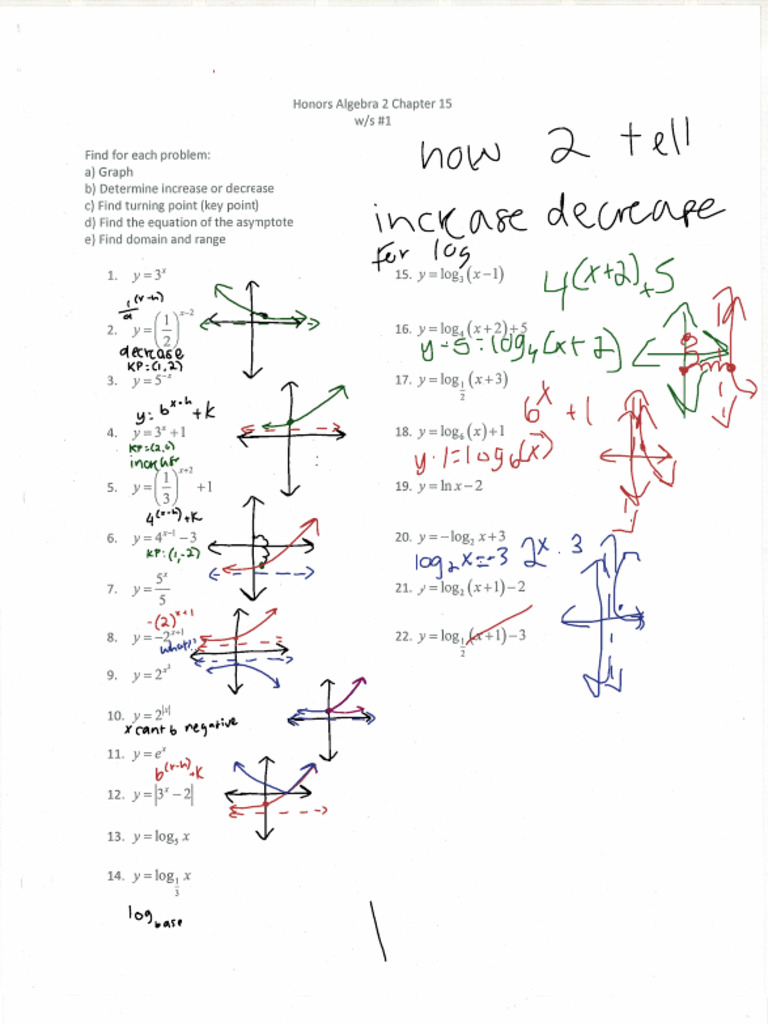 Honors Algebra 2 Chapter 15
w/s #1
how 2 tell
increase decrease
for log
Find for each problem:
a) Graph
b) Determine increase or decrease
c) Find turning point (key point)
d) Find the equation of the asymptote
e) Find domain and range
1. y = 3^x
1/a^(x-h)
2. y = (1/2)^(x-2)
decrease
KP:(1,2)
3. y = 5^(-x)
y= b^(x-h) + k
4. y = 3^x + 1
increase
5. y = (1/3)^(x+2) + 1
4^(x-h)+k
6. y = 4^(x-1) - 3
KP:(1,-2)
7. y = 5^x/5
-(2)^(x+1)
8. y = -2^(x+1)
9. y = 2^(x^2)
10. y = 2^|x|
x cant b negative
11. y = e^x
b^(x-h)+k
12. y = |3^x - 2|
13. y = log_5 x
14. y = log_(1/3) x
log base
15. y = log_3 (x-1)
4^(x+2)+5
16. y = log_4 (x+2)+5
y-5=log_4(x+2)
17. y = log_(1/2) (x+3)
6^x +1
18. y = log_6 (x)+1
y-1=log_6(x)
19. y = ln x - 2
20. y = -log_2 x + 3
log_2x=-3 2^x · 3
21. y = log_2 (x+1) - 2
22. y = log_(1/2) (x+1) - 3